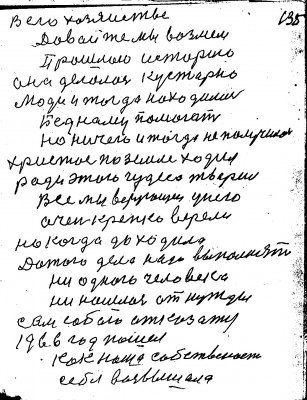 В его хозяйстве
135
Довайте мы возмем
Прошлою историю
она делолас кустарно
Люди и тогда находилис
Бедналу помогат
но ничего и тогда не получилос
христос по земле ходил
ради этого чудеса творил
Все мы верующии у него
очен крепко верели
но когда доходила
До того дела надо выполнят
ни одного человека
ни нашлос от нужды
сам собою отказату
1966 год пошел
как наша собственост
себя возвышала